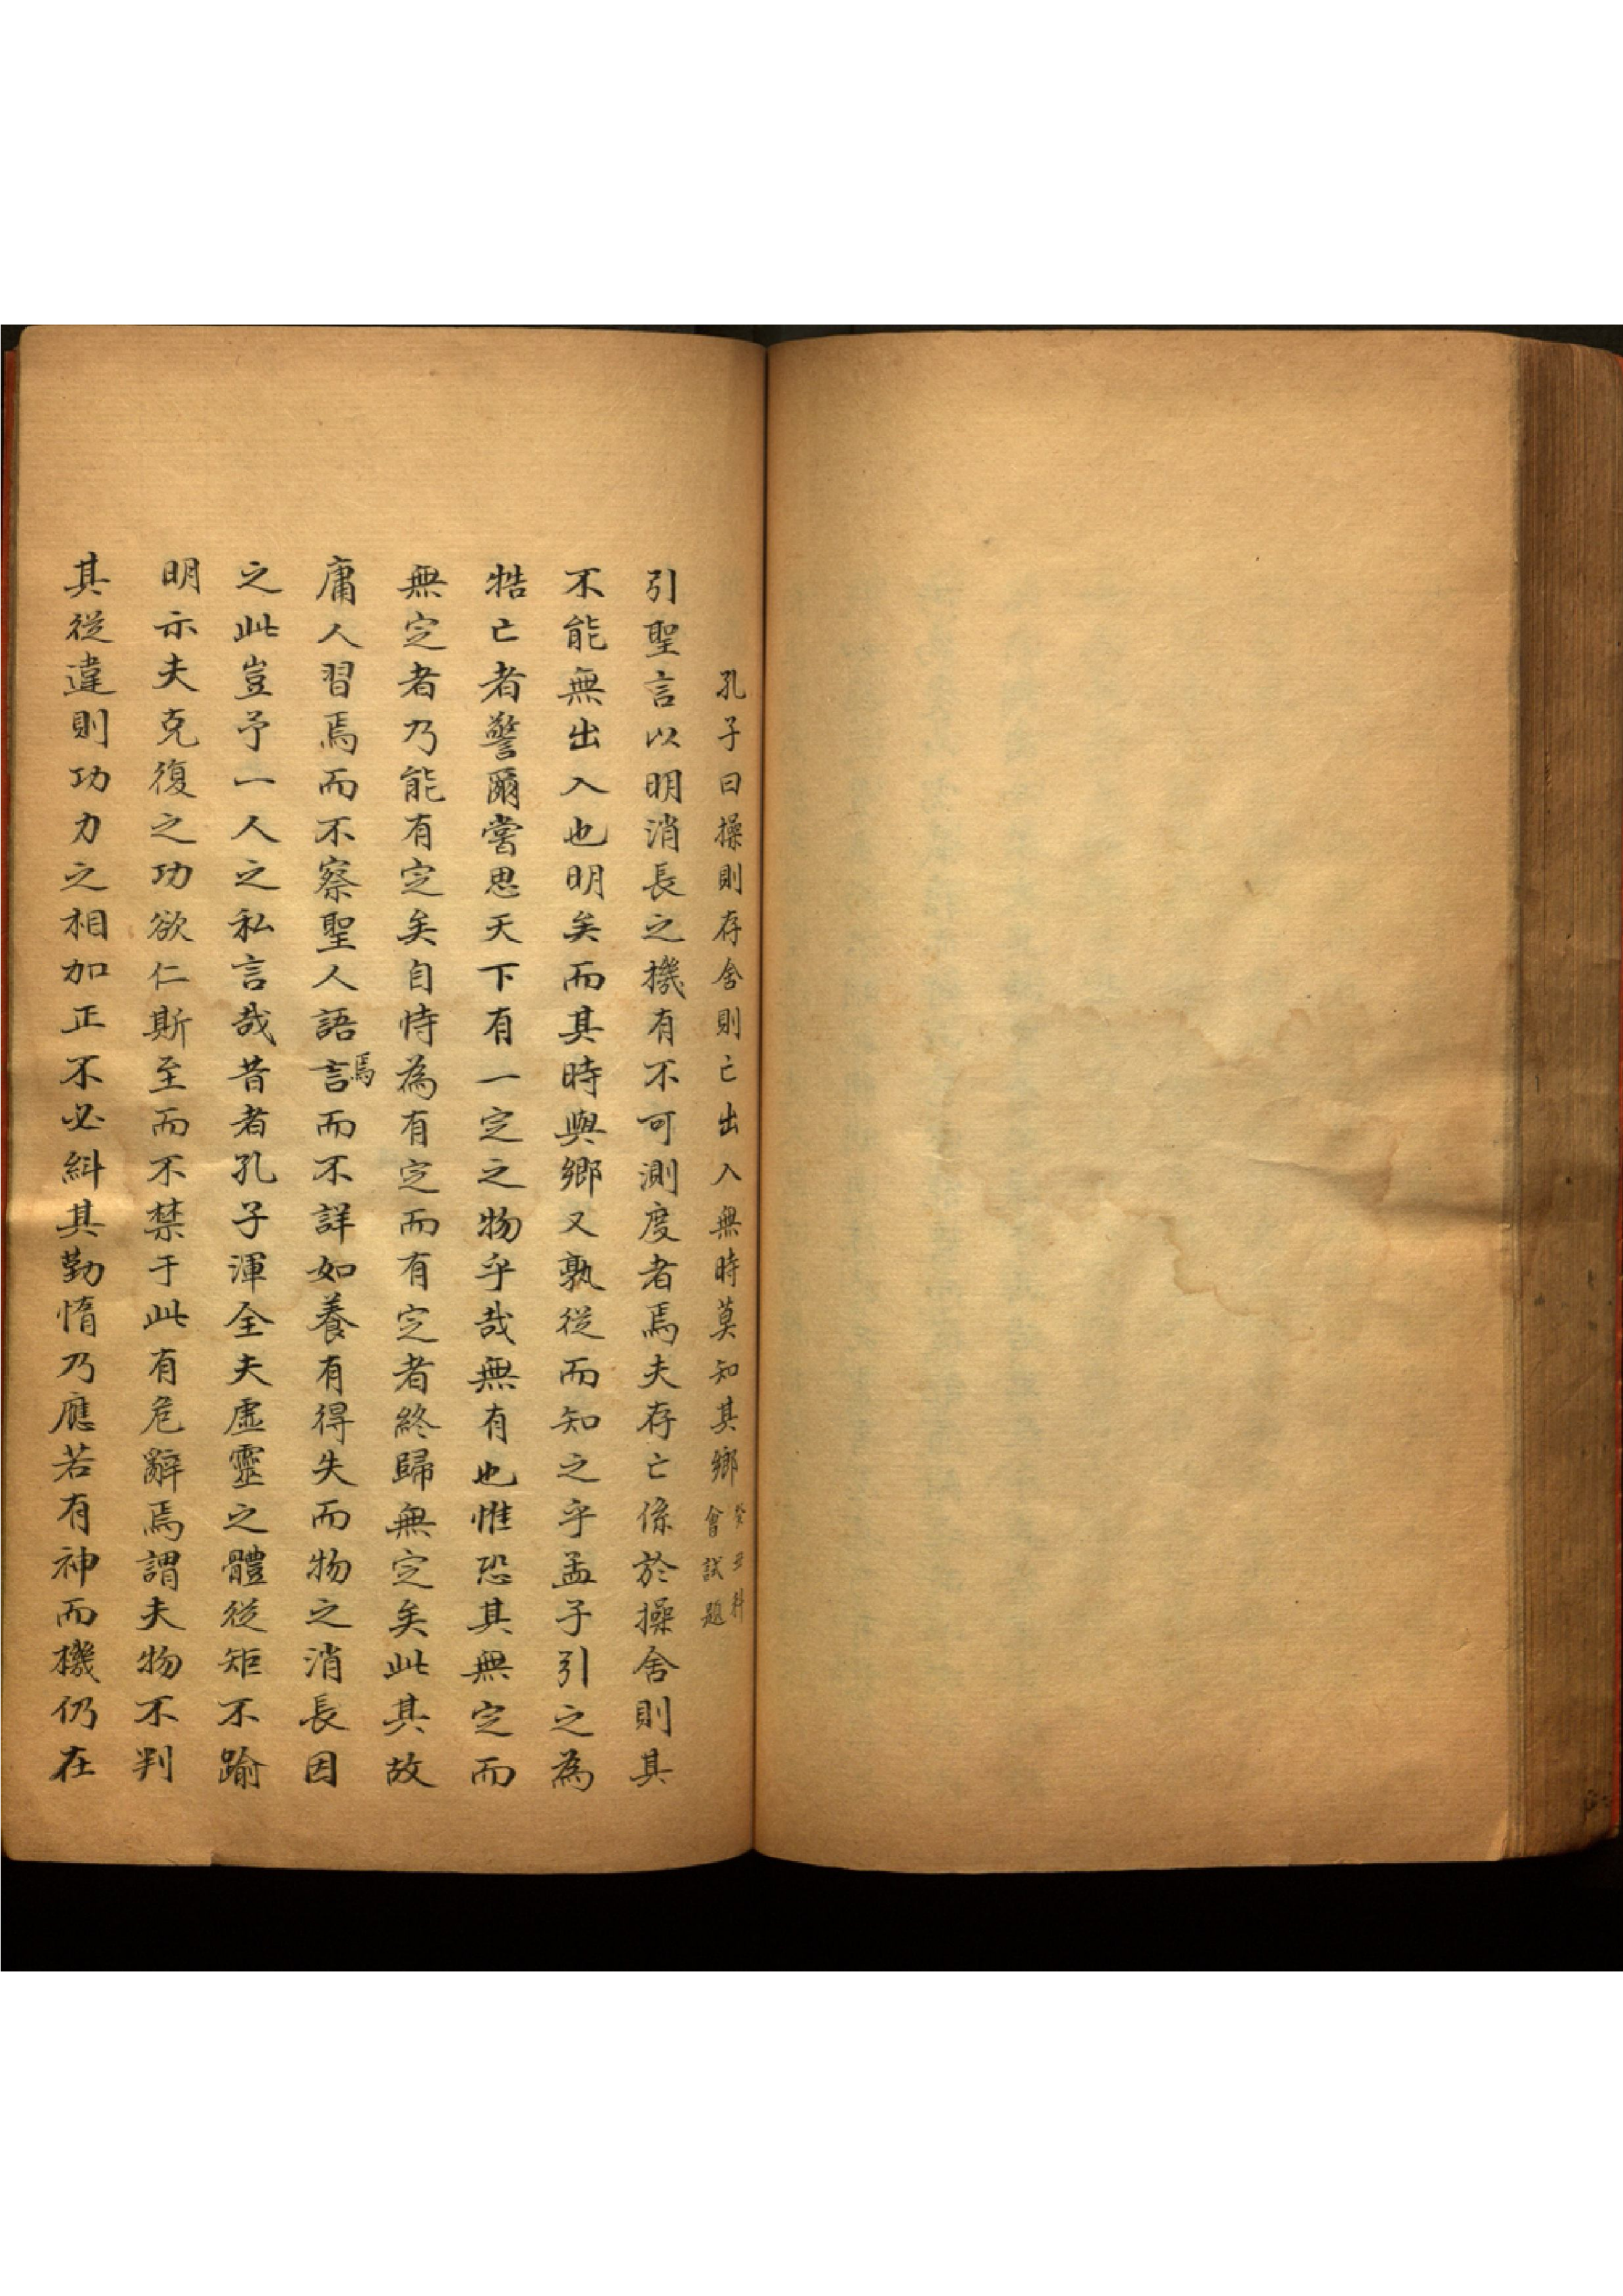 孔子曰操則存舍則亡出入無時莫知其鄉癸丑科會試題
引聖言以明消長之機有不可測度者焉夫存亡係於操舍則其
不能無出入也明矣而其時與鄉又孰從而知之乎孟子引之為
牿亡者警爾嘗思天下有一定之物乎哉無有也惟恐其無定而
無定者乃能有定矣自恃為有定而有定者終歸無定矣此其故
庸人習焉而不察聖人語焉言而不詳如養有得失而物之消長因
之此豈予一人之私言哉昔者孔子渾全夫虛靈之體從矩不踰
明示夫克復之功欲仁斯至而不禁于此有危辭焉謂夫物不判
其從違則功力之相加正不必糾其勤惰乃應若有神而機仍在